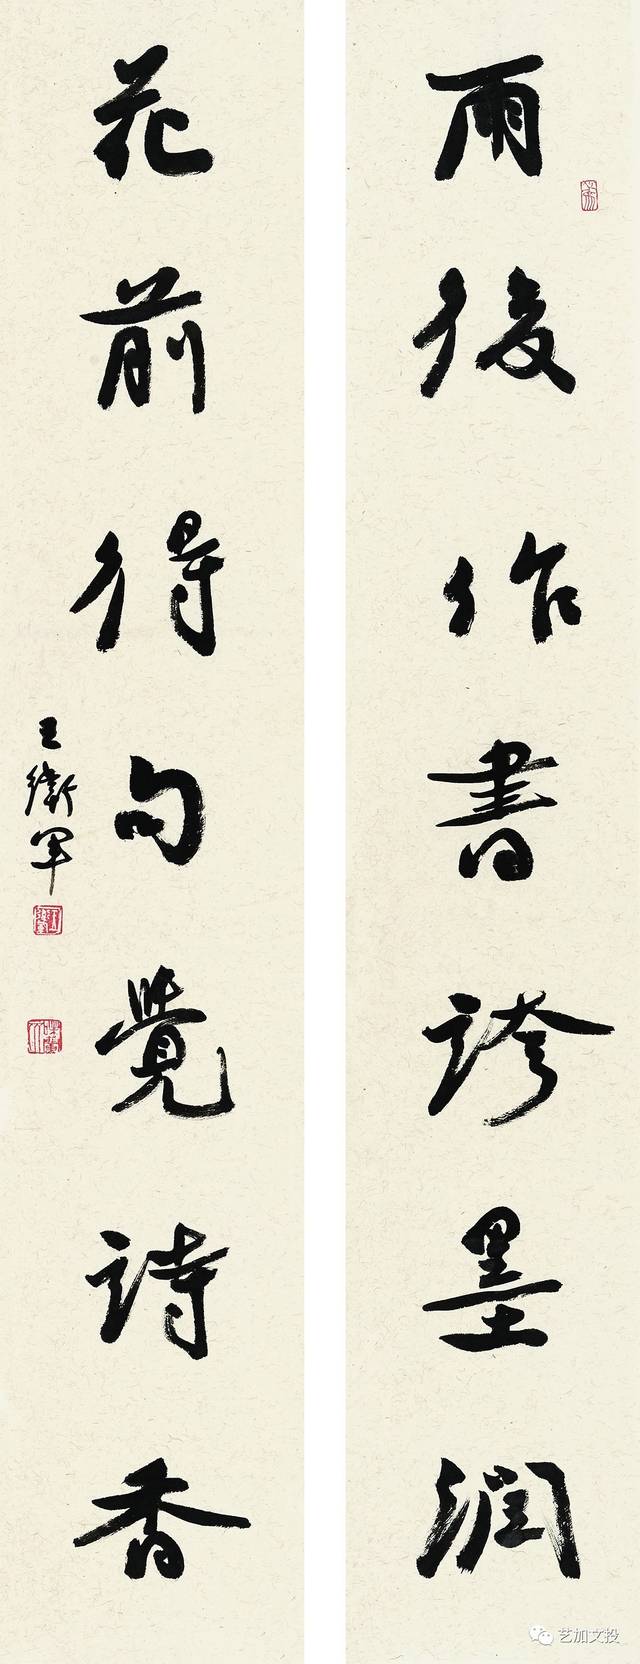 雨後作書誇墨潤
花前得句覺詩香
王衛軍
艺加文投